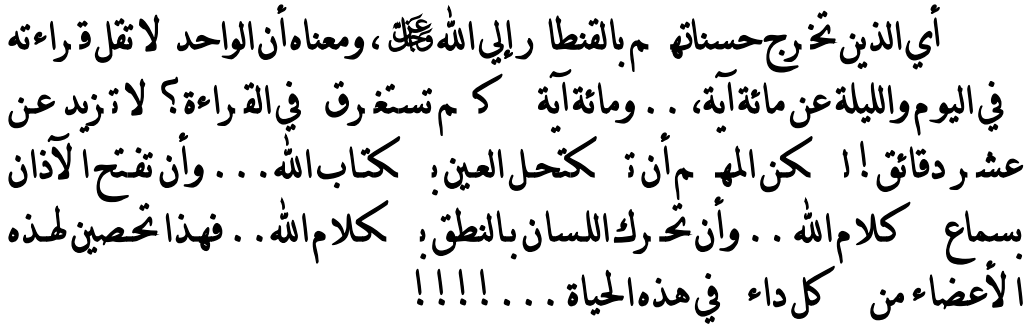 أي الذين تخرج حسناتهم بالقنطار إلي الله ﷻ، ومعناه أن الواحد لا تقل قراءته
في اليوم والليلة عن مائة آية، .. ومائة آية كم تستغرق في القراءة؟ لا تزيد عن
عشر دقائق! لكن المهم أن تكتحل العين بكتاب الله... وأن تفتح الآذان
بسماع كلام الله .. وأن تحرك اللسان بالنطق بكلام الله.. فهذا تحصين لهذه
الأعضاء من كل داء في هذه الحياة ...!!!!